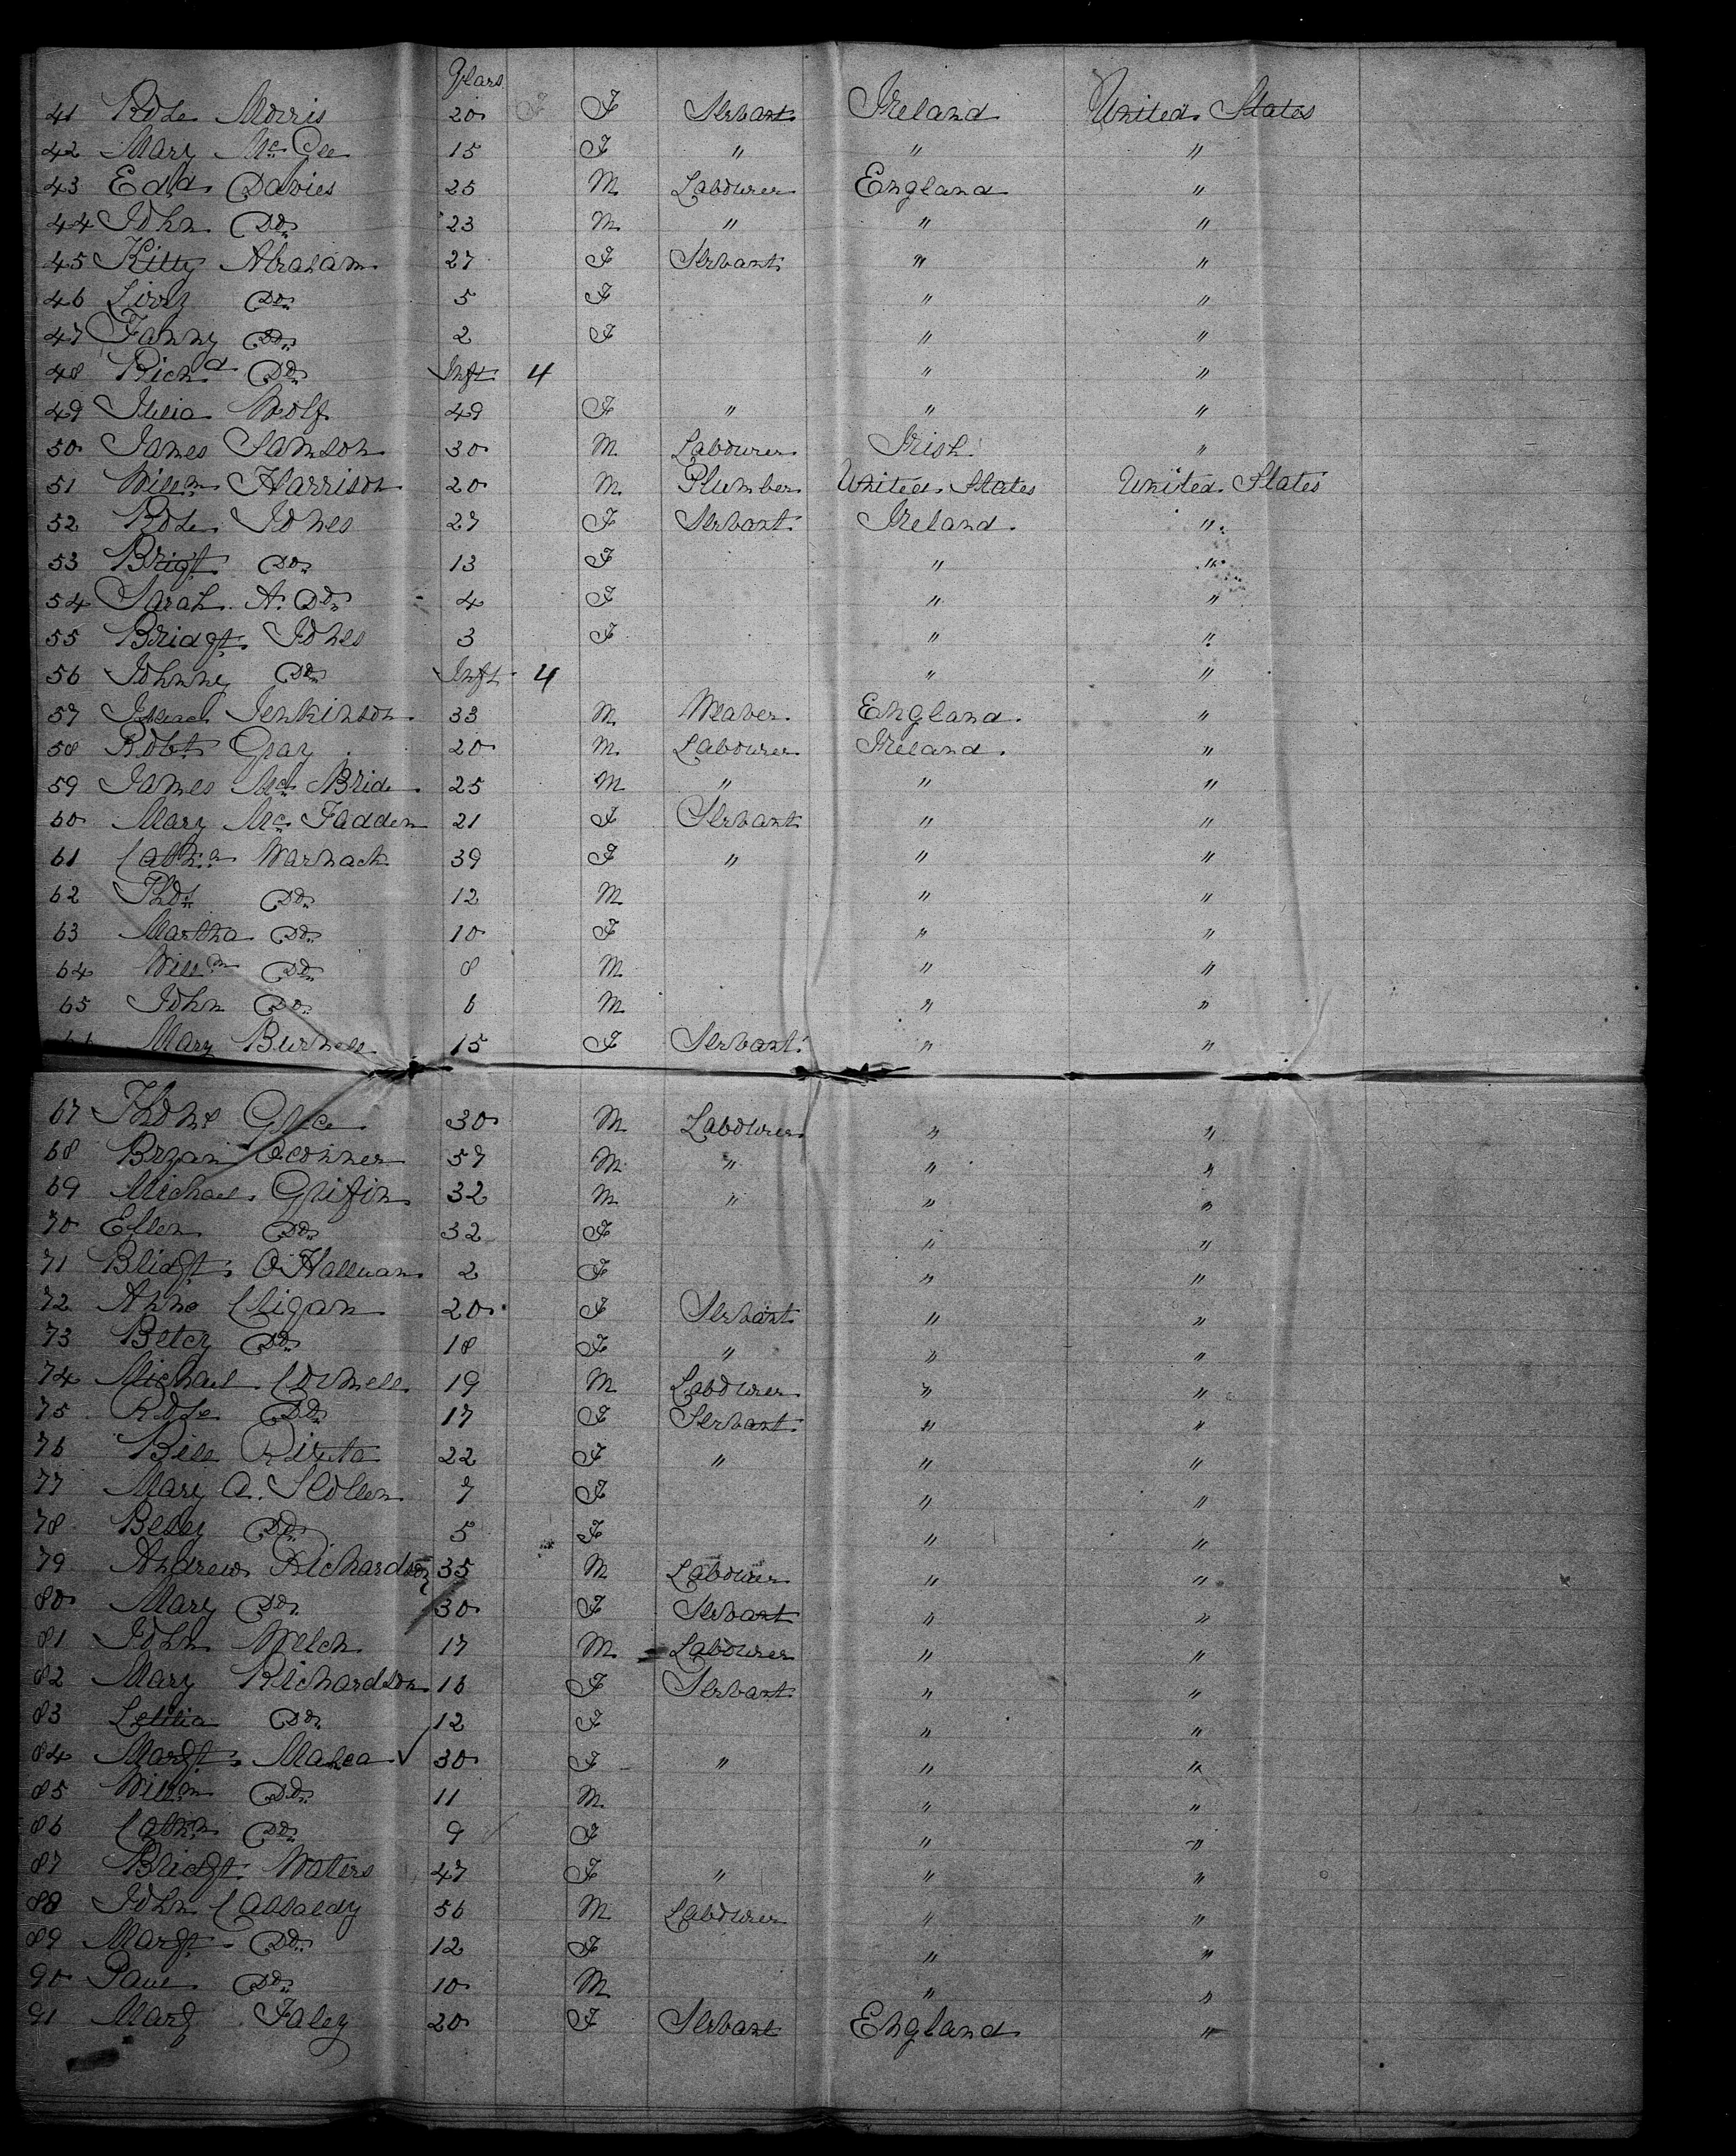 Years
41 Rose Morris 20 F Servant Ireland United States
42 Mary McGee 15 F " " "
43 Edd. Davies 25 M Labourer England "
44 John Do. 23 M " " "
45 Kitty Abraham 27 F Servant " "
46 Lizzy Do. 5 F " "
47 Fanny Do. 2 F " "
48 Richd Do. Inft 4 " "
49 Wolf 49 F " " "
50 James Samson 30 M Labourer Irish "
51 Willm Harrison 20 M Plumber United States United States
52 Rose Jones 27 F Servant Ireland "
53 Brigt. Do. 13 F " "
54 Sarah A. Do. 4 F " "
55 Bridgt. Jones 3 F " "
56 Johnney Do. Inft 4 " "
57 Jenkinson 33 M Weaver England "
58 Robt. Gray 20 M Labourer Ireland "
59 James Mc Bride 25 M " " "
60 Mary Mc Fadden 21 F Servant " "
61 Cathn Warnack 39 F " " "
62 Thos. Do. 12 M " "
63 Martha Do. 10 F " "
64 Willm Do. 8 M " "
65 John Do. 6 M " "
66 Mary 15 F Servant " "
67 Thoms 30 M Labourer " "
68 Bryan Oconner 57 M " " "
69 Michael Griffin 32 M " " "
70 Ellen Do. 32 F " "
71 Bridgt. 2 F " "
72 Anne 20 F Servant " "
73 Betcy Do. 18 F " " "
74 Michael 19 M Labourer " "
75 Rose Do. 17 F Servant " "
76 22 F " " "
77 Mary A. 7 F " "
78 Betsy Do. 5 F " "
79 Andrew Richardson 35 M Labourer " "
80 Mary Do. 30 F Servant " "
81 John Welch 17 M Labourer " "
82 Mary Richardson 16 F Servant " "
83 Letitia Do. 12 F " "
84 Margt. ✓ 30 F " " "
85 Willm Do. 11 M " "
86 Cathn Do. 9 F " "
87 Bridgt. Waters 47 F " " "
88 John 56 M Labourer " "
89 Margt. Do. 12 F " "
90 Paul Do. 10 M " "
91 Mary Faley 20 F Servant England "